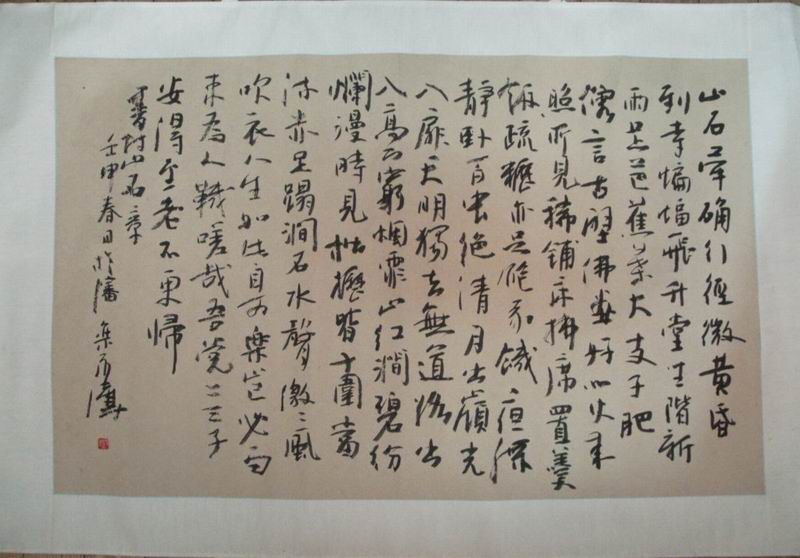 山石犖确行徑微黃昏
到寺蝙蝠飛升堂坐階新
雨足芭蕉葉大支子肥
僧言古壁佛畫好以火來
照所見稀鋪床拂席置羹
飯疏糲亦足飽我饑夜深
靜臥百虫絕清月出嶺光
入扉天明獨去無道路出
入高下窮烟霏山紅澗碧紛
爛漫時見松櫪皆十圍當
流赤足蹋澗石水聲激々風
吹衣人生如此自可樂豈必局
束為人鞿嗟哉吾黨二三子
安得至老不更歸
山石章
壬申春日於瀋